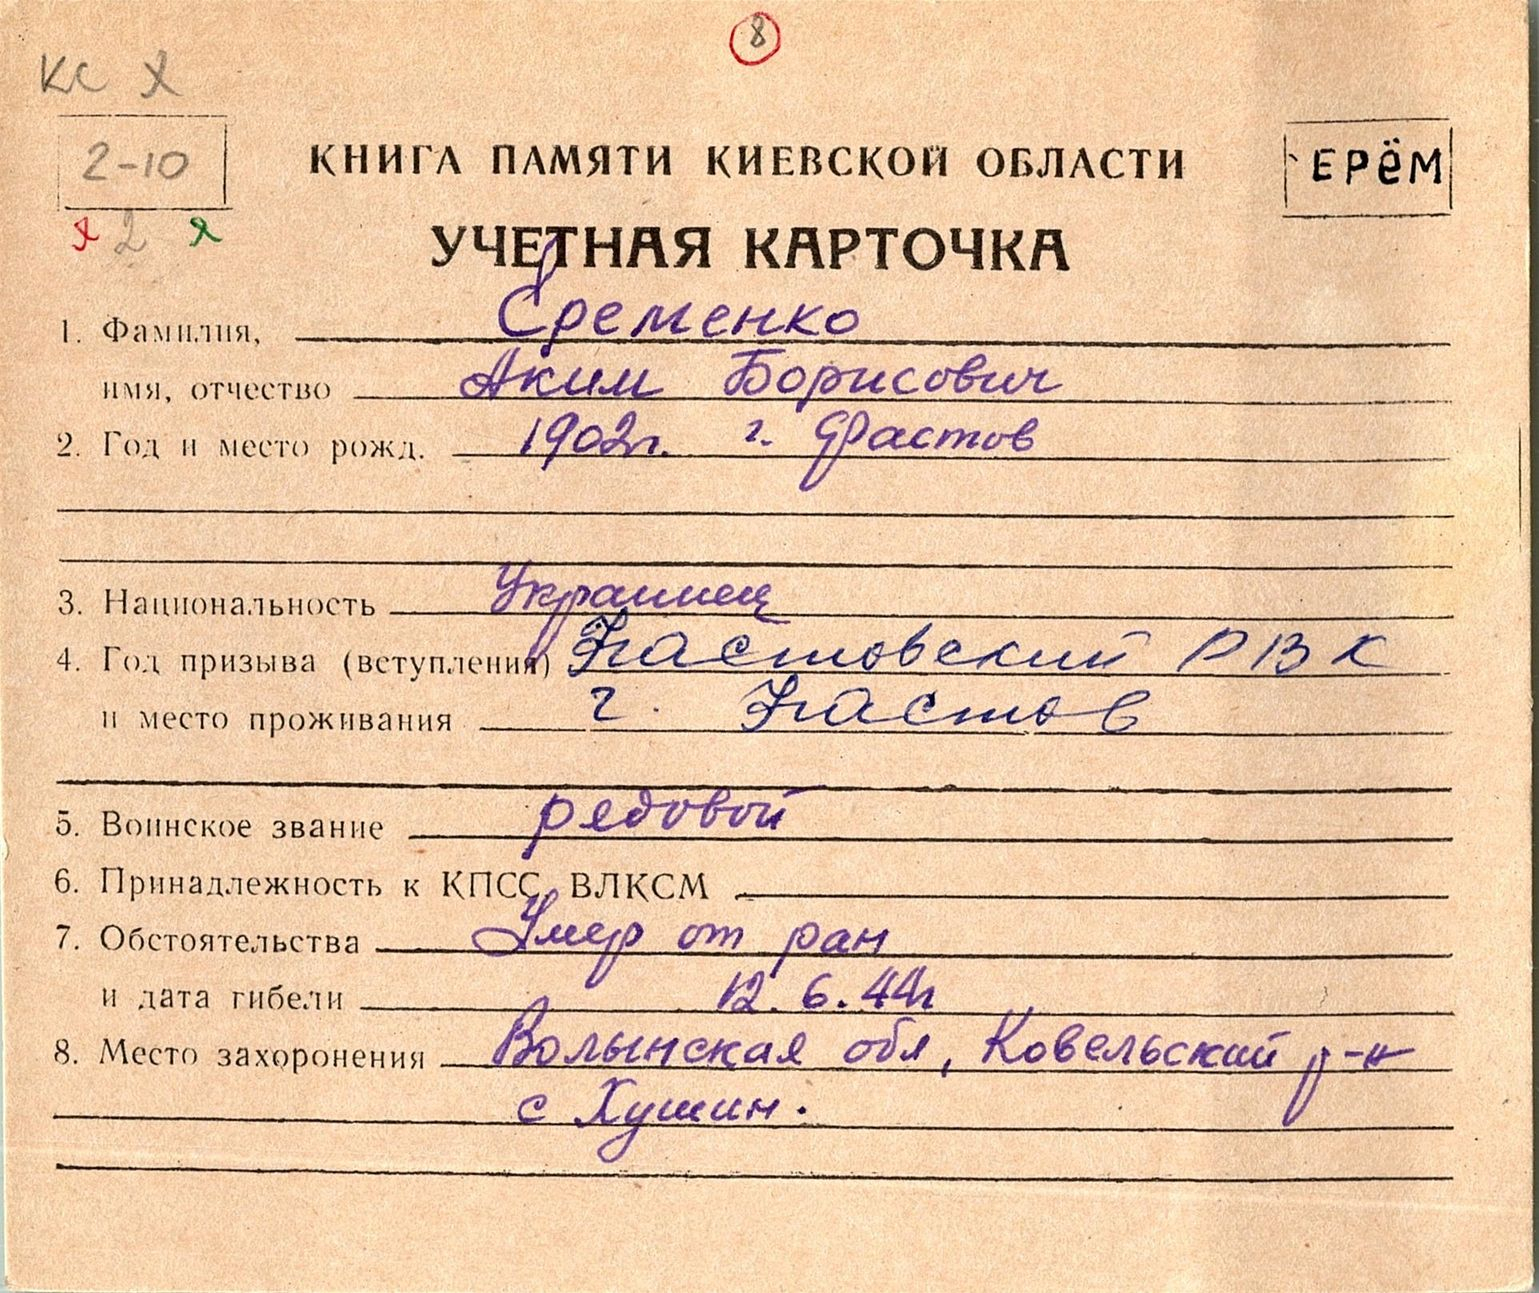 8
КС
2-10
КНИГА ПАМЯТИ КИЕВСКОЙ ОБЛАСТИ
ЕРЁМ
2
УЧЕТНАЯ КАРТОЧКА
1. Фамилия, Еременко
имя, отчество Аким Борисович
2. Год и место рожд. 1902г. г. Фастов
3. Национальность Украинец
4. Год призыва (вступления) Фастовский РВК
и место проживания г. Фастов
5. Воинское звание рядовой
6. Принадлежность к КПСС, ВЛКСМ
7. Обстоятельства Умер от ран
и дата гибели 12.6.44г
8. Место захоронения Волынская обл, Ковельский р-н
с Хушин.